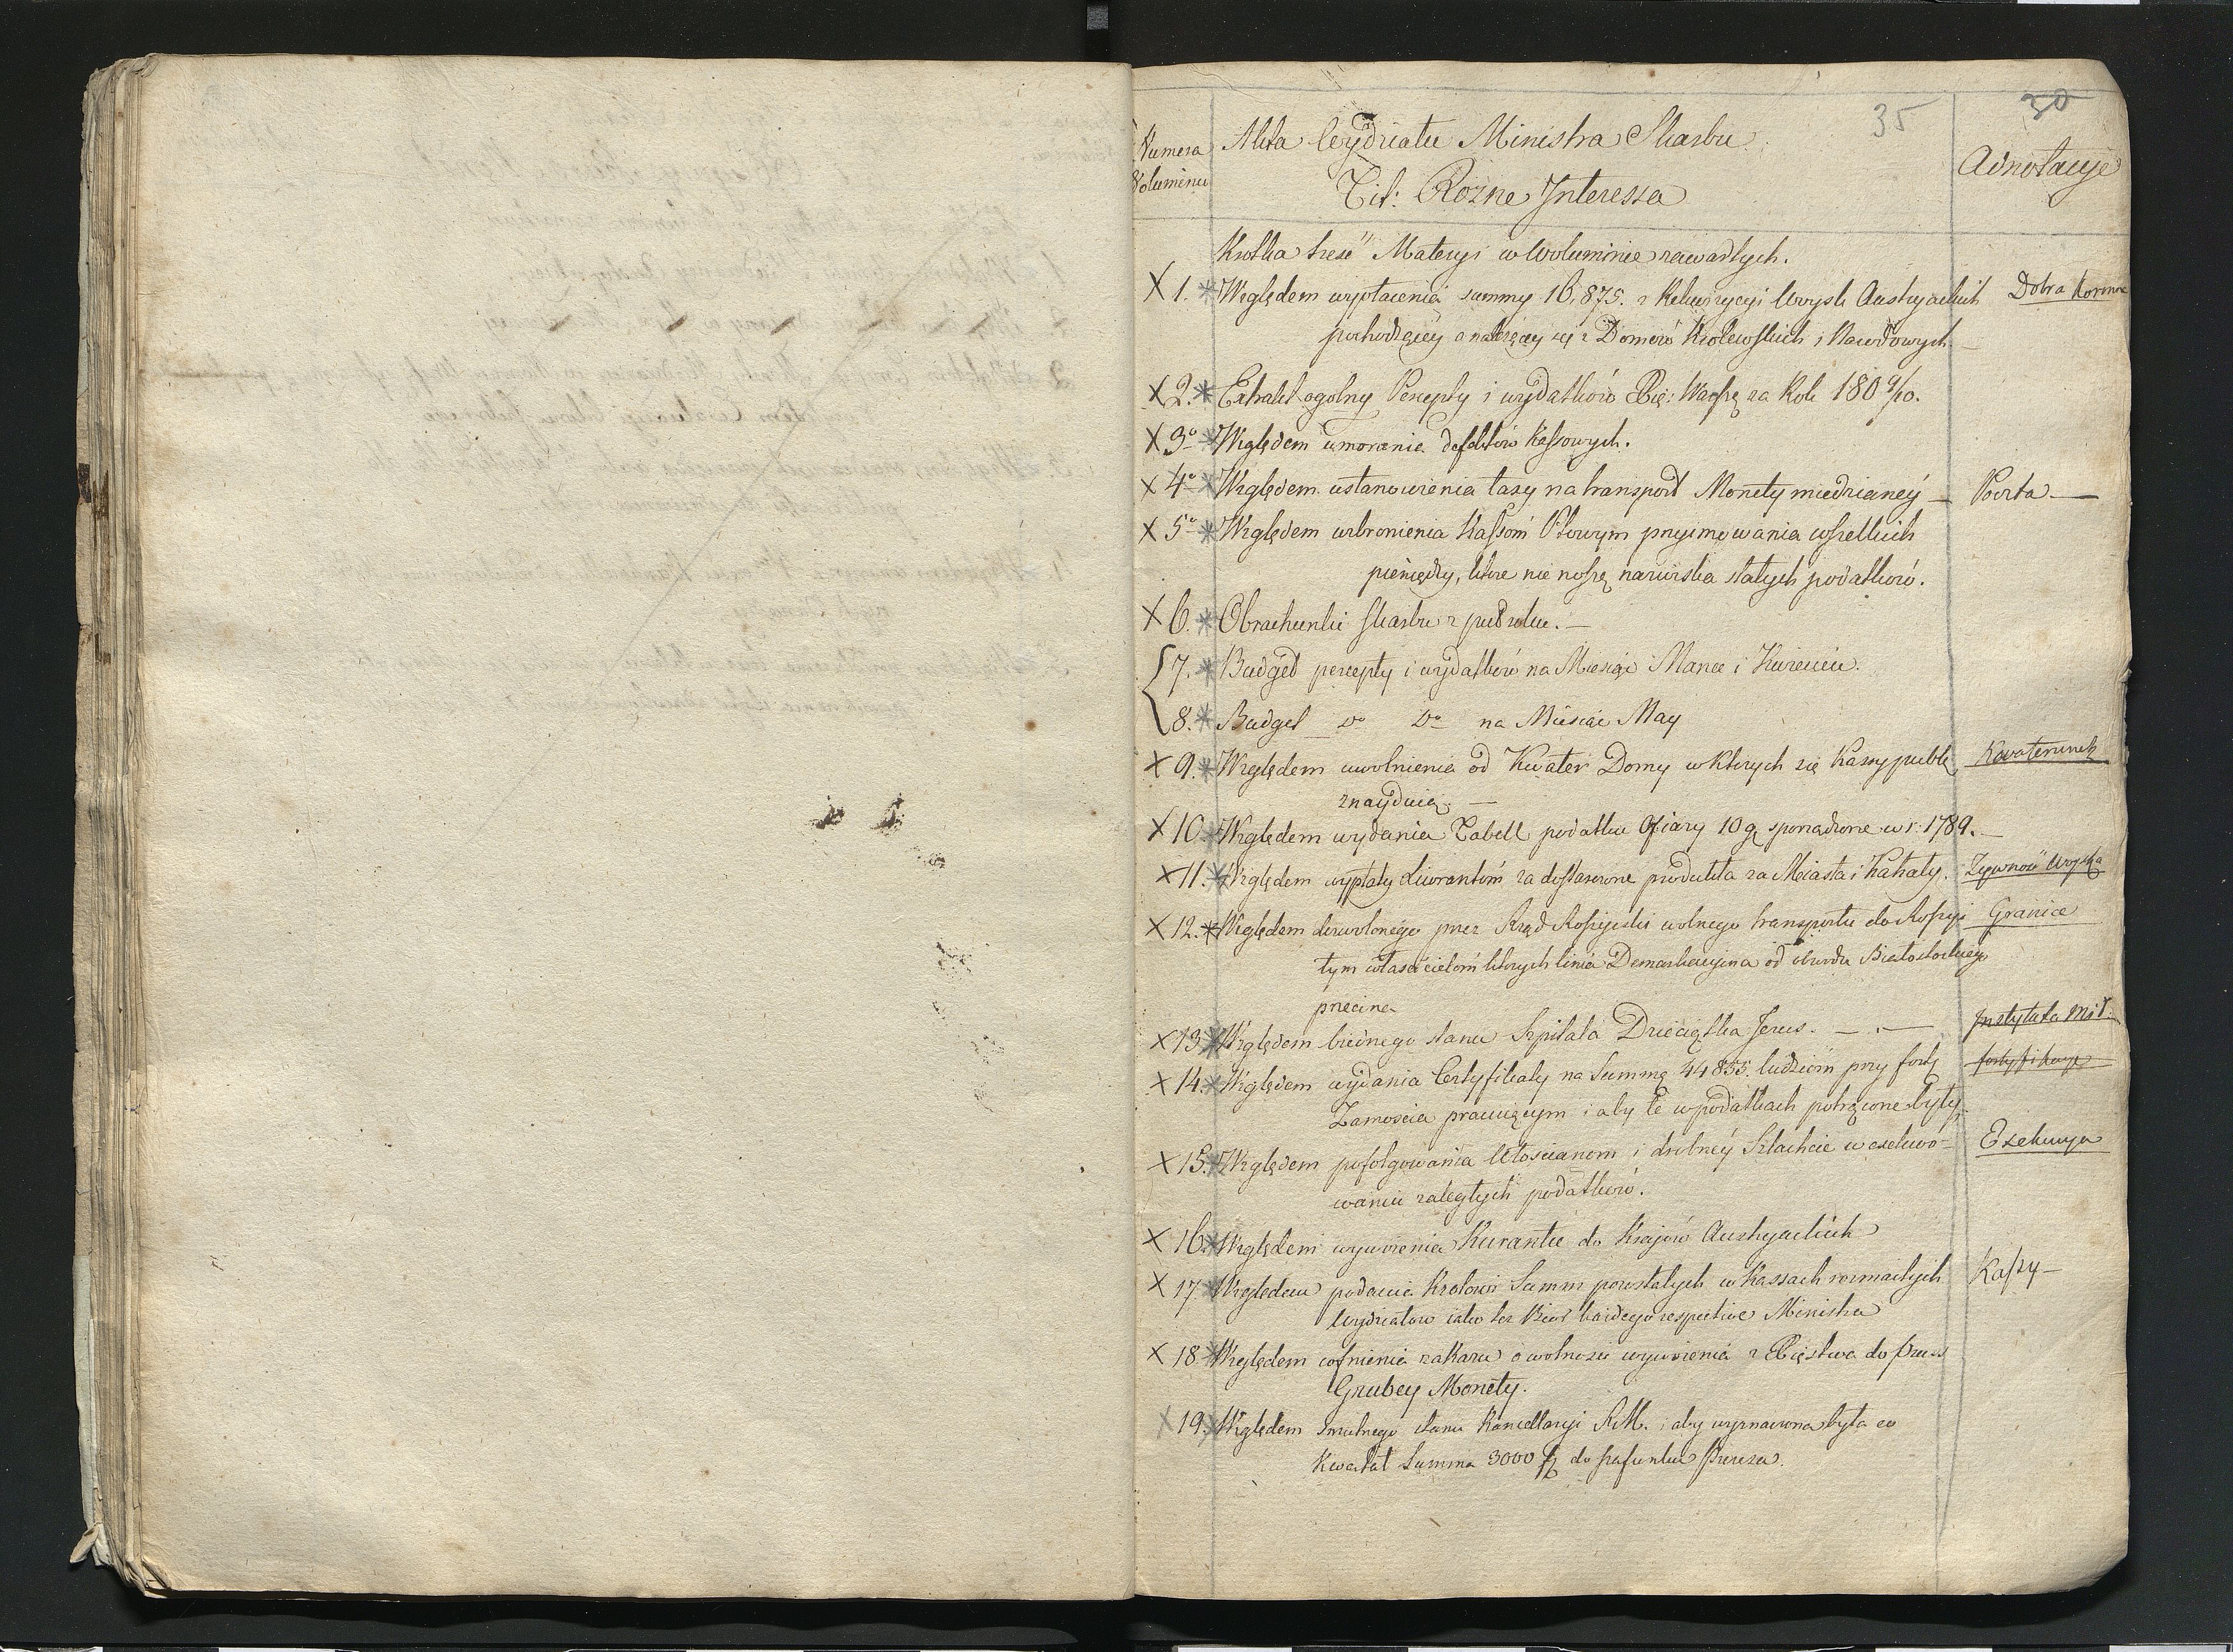 35
30
Numera
Voluminu
Akta Wydziału Ministra Skarbu
Tit: Rożne Interessa
Adnotacye
Krotka treść Materyi w Woluminie zawartych.
X 1. * Względem wypłacenia summy 16,875. z Rekwizycyi Woysk Austryackich
Dobra Koronne
pochodzącey a należącey się z Domow Krolewskich i Narodowych.
X 2. * Extrakt ogolny Percepty i wydatkow Xię: Warsz za Rok 1809/10.
X 3o * Względem umorzenia defektow Kassowych.
X 4o * Względem ustanowienia taxy na transport Monety miedzianey —
Poczta —
X 5o * Względem wzbronienia Kassom Ptowym przyimowania wszelkich
pieniędzy, ktore nie noszą nazwiska stałych podatkow.
X 6. * Obrachunki Skarbu z —
7. * Budget percepty i wydatkow na Miesiąc Marzec i Kwiecień.
8. * Budget Do Do na Miesiąc May
X 9. * Względem uwolnienia od Kwater Domy w ktorych się Kassy publ
Kwaterunek
znayduią. —
X 10. * Względem wydania Tabell podatku Ofiary 10 g sporządzone w r: 1789. —
X 11. * Względem wypłaty Liwerantom za dostarczone produkta za Miasta i Kahały.
Żywność Woyska
X 12. * Względem dozwolonego przez Rząd Rossyiski wolnego transportu do Rossyi
Granice
tym właścicielom ktorych linia Demarkacyina od obwodu Białostockiego
przecina
X 13 * Względem biednego stanu Szpitala Dzieciątka Jezus. — . —
Instytuta Mił.
X 14. * Względem wydania Certyfikaty na Summę 44835. ludziom przy fort
fortyfikacye
Zamościa pracuiącym i aby te w podatkach potrącone były
X 15. * Względem pofolgowania Włościanom i drobney Szlachcie w exekwo-
Exekucya
waniu zaległych podatkow.
X 16. * Względem wywozienia Kurantu do Kraiow Austryackich
X 17 * Względem podania Krolowi Summ pozostałych w Kassach rozmaitych
Kassy —
Wydziałow iako też Biór każdego respective Ministra
X 18 * Względem cofnienia zakazu o wolności wywozienia z Xięstwa do Pruss
Grubey Monety.
X 19. * Względem smutnego stanu Kancellaryi R.M. i aby wyznaczona była co
Kwartał Summa 3000 do szafunku Prezesa.